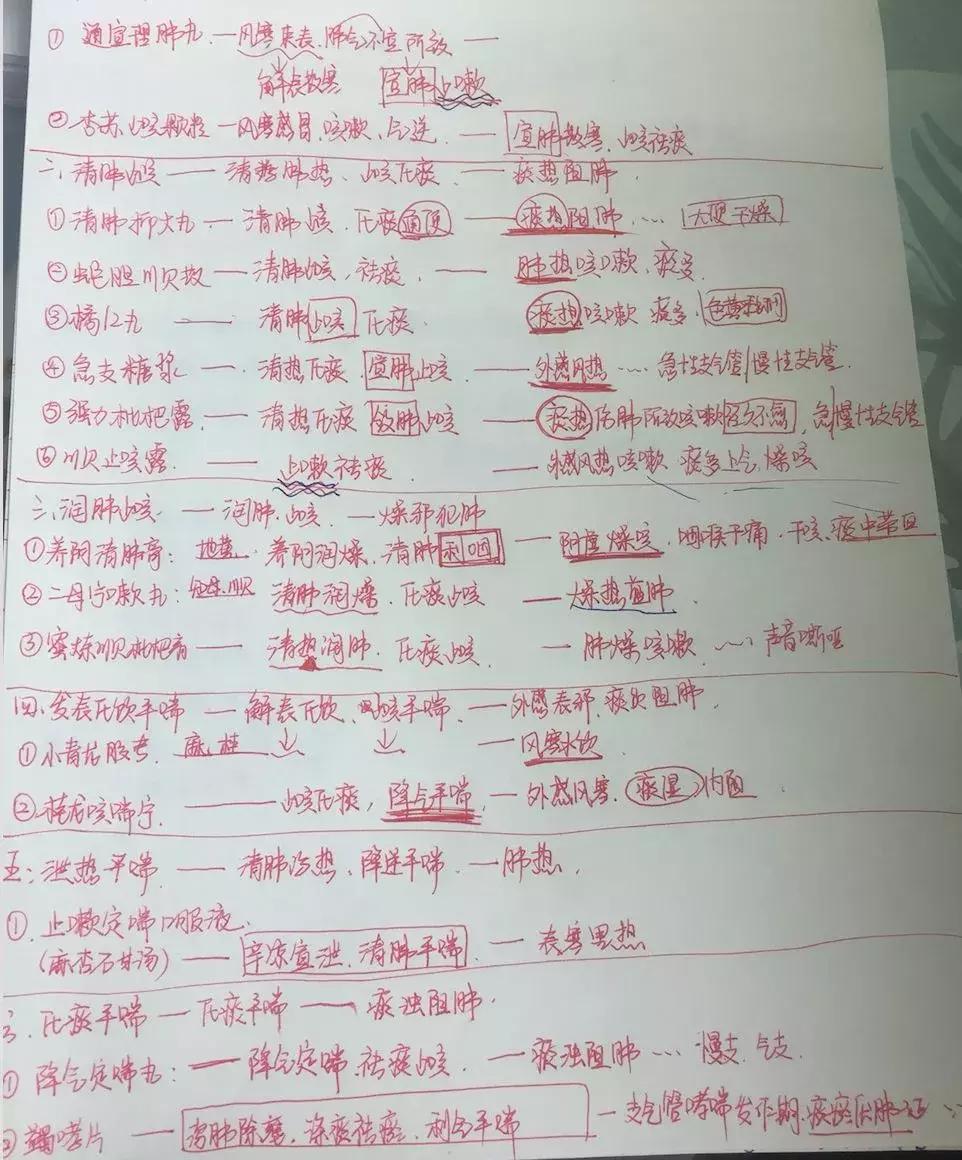 ① 通宣理肺丸 — 风寒束表、肺气不宣所致 —
解表散寒 宣肺止嗽
② 杏苏止咳颗粒 — 风寒感冒、咳嗽、气逆 — 宣肺散寒 止咳祛痰
二、清肺止咳 — 清热肺热、止咳化痰 — 痰热阻肺.
① 清肺抑火丸 — 清肺止咳、化痰通便 — 痰热阻肺 … 大便干燥
② 蛇胆川贝散 — 清肺止咳,祛痰. — 肺热咳嗽,痰多.
③ 橘红丸 — 清肺止咳 化痰. 痰热咳嗽 痰多、色黄
④ 急支糖浆 — 清热化痰 宣肺止咳 — 外感风热 … 急性支气管/慢性支气管.
⑤ 强力枇杷露 — 清热化痰 敛肺止咳 — 痰热伤肺所致咳嗽经久不愈,急/慢性支气管
⑥ 川贝止咳露. — 止嗽祛痰 — 外感风热咳嗽 痰多上气,燥咳
三、润肺止咳 — 润肺、止咳. — 燥邪犯肺
① 养阴清肺膏: 地黄. 养阴润燥、清肺利咽 — 阴虚燥咳、咽喉干痛、干咳、痰中带血
② 二母宁嗽丸: 知母、川贝 清肺润燥、化痰止咳 — 燥热蕴肺.
③ 蜜炼川贝枇杷膏 — 清热润肺、化痰止咳. — 肺燥咳嗽 … 声音嘶哑
四、发表化饮平喘 — 解表化饮、止咳平喘. — 外感表邪、痰饮阻肺.
① 小青龙胶囊. 麻、桂 — 风寒水饮
② 桂龙咳喘宁. — 止咳化痰,降气平喘. — 外感风寒、痰湿内阻.
五: 泄热平喘 — 清肺泄热、降逆平喘. — 肺热.
①. 止嗽定喘口服液.
(麻杏石甘汤) — 辛凉宣泄、清肺平喘 — 表寒里热
化痰平喘 — 化痰平喘 — 痰浊阻肺.
① 降气定喘丸: — 降气定喘、祛痰止咳. — 痰浊阻肺 … 慢支、气支.
② 蠲哮片 — 泻肺除壅、涤痰祛瘀、利气平喘 — 支气管哮喘发作期,痰瘀伏肺证